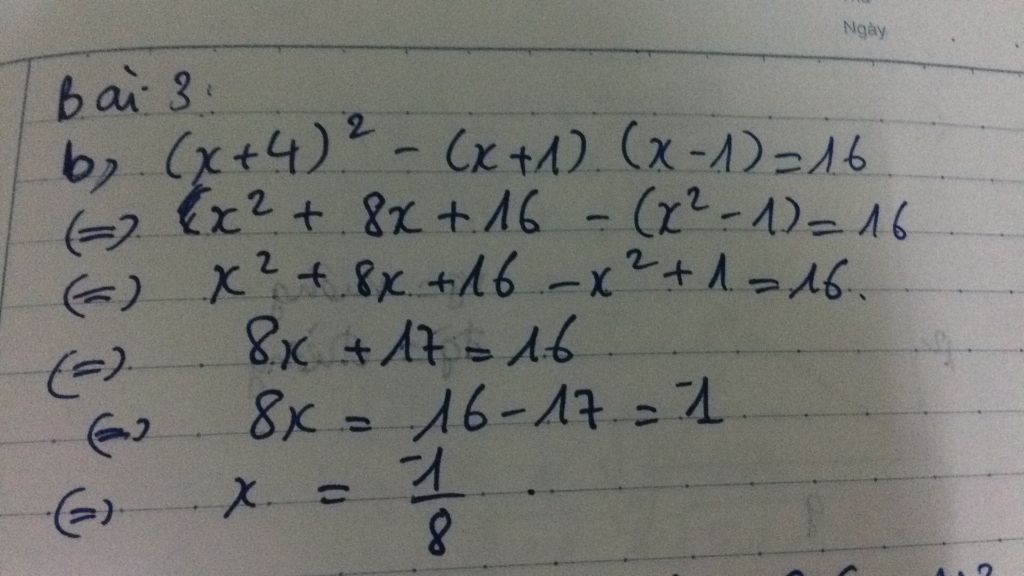 Ngày
Bài 3:
b, (x+4)² - (x+1) (x-1) = 16
(=) (x² + 8x + 16 - (x² - 1) = 16
(=) x² + 8x + 16 - x² + 1 = 16.
(=) 8x + 17 = 16
(=) 8x = 16 - 17 = -1
(=) x = -1/8 .